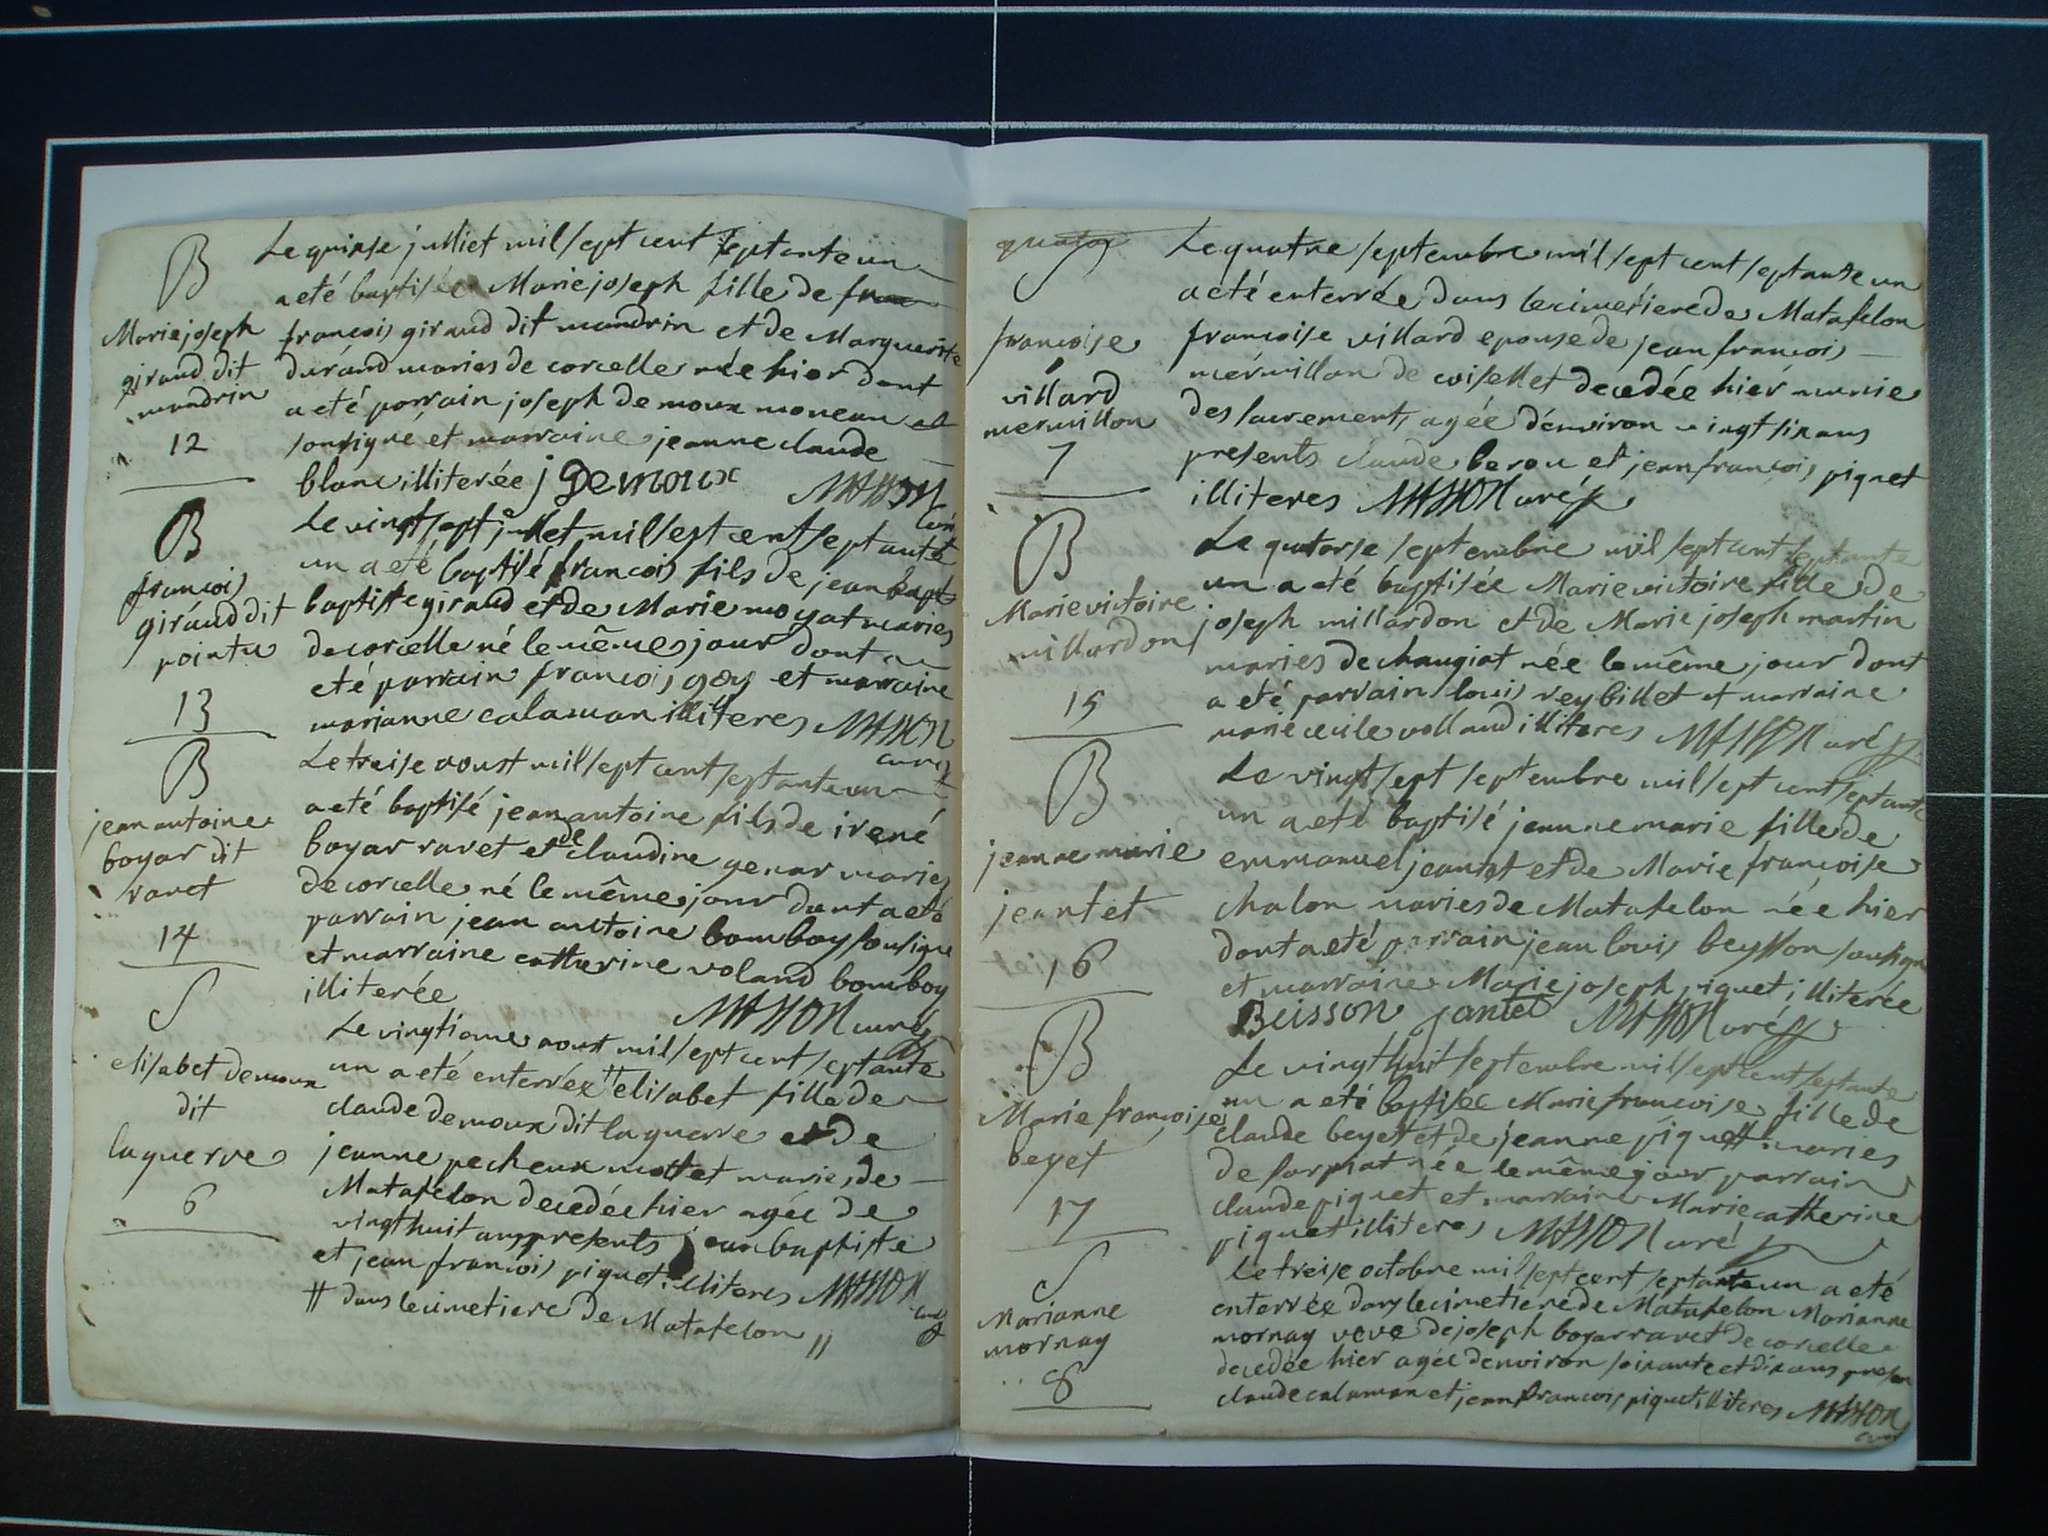 B
Marie joseph
giraud dit
mandrin
12
Le quinse julliet mil sept cent septante un
a eté baptisée Marie joseph fille de fran
francois giraud dit mandrin et de Marguerite
durand maries de corcelle née hier dont
a eté parrain joseph demoux moneau et
sousigné et marraine jeanne claude
blanc illiterée j Demoux MASSON
curé
B
francois
giraud dit
pointu
13
Le vingt sept jullet mil sept cent septante
un a eté baptisé francois fils de jean bapt
baptiste giraud et de Marie moyat maries
de corcelle né le même jour dont a
eté parrain francois goy et marraine
marianne calaman illiteres MASSON
curé
B
jean antoine
boyar dit
ravet
14
Le treise aoust mil sept cent septante un
a eté baptisé jean antoine fils de irené
boyar ravet et de claudine genar maries
de corcelle né le même jour dont a eté
parrain jean antoine bomboy sousigné
et marraine catherine voland bomboy
illiterée
MASSON curé
S
elisabet demoux
dit
laguerre
6
Le vingtième aoust mil sept cent septante
un a eté enterrée # elisabet fille de
claude demoux dit laguerre et de
jeanne pecheux mottet maries de
Matafelon decedée hier agée de
vingt huit ans presents jean baptiste
et jean francois piquet illiteres MASSON
curé
# dans le cimetiere de Matafelon //
S
francoise
villard
mermillon
7
Le quatre septembre mil sept cent septante un
a eté enterrée dans le cimetiere de Matafelon
francoise villard epouse de jean francois
mermillon de coiselet decedée hier munie
des sacrements agée d'environ vingt six ans
presents claude berou et jean francois piquet
illiteres MASSON curé
B
Marie victoire
millardon
15
Le quatorse septembre mil sept cent septante
un a eté baptisée Marie victoire fille de
joseph millardon et de Marie joseph martin
maries de changiat née le même jour dont
a eté parrain louis rey billet et marraine
marie cecile volland illiteres MASSON curé
B
jeanne marie
jeantet
16
Le vingt sept septembre mil sept cent septante
un a eté baptisé jeanne marie fille de
emmanuel jeantet et de Marie francoise
chalon maries de Matafelon née hier
dont a eté parrain jean louis beysson sousigné
et marraine Marie joseph piquet illiterée
Beisson jantet MASSON curé
B
Marie francoise
beyet
17
Le vingt huit septembre mil sept cent septante
un a eté baptisée Marie francoise fille de
claude beyet et de jeanne piquet maries
de sorpiat née le même jour parrain
claude piquet et marraine Marie catherine
piquet illiteres MASSON curé
S
Marianne
mornay
8
Le treise octobre mil sept cent septante un a eté
enterrée dans le cimetiere de Matafelon Marianne
mornay veve de joseph boyar ravet de corcelle
decedée hier agée d'environ soixante et dix ans presen
claude calaman et jean francois piquet illiteres MASSON
curé